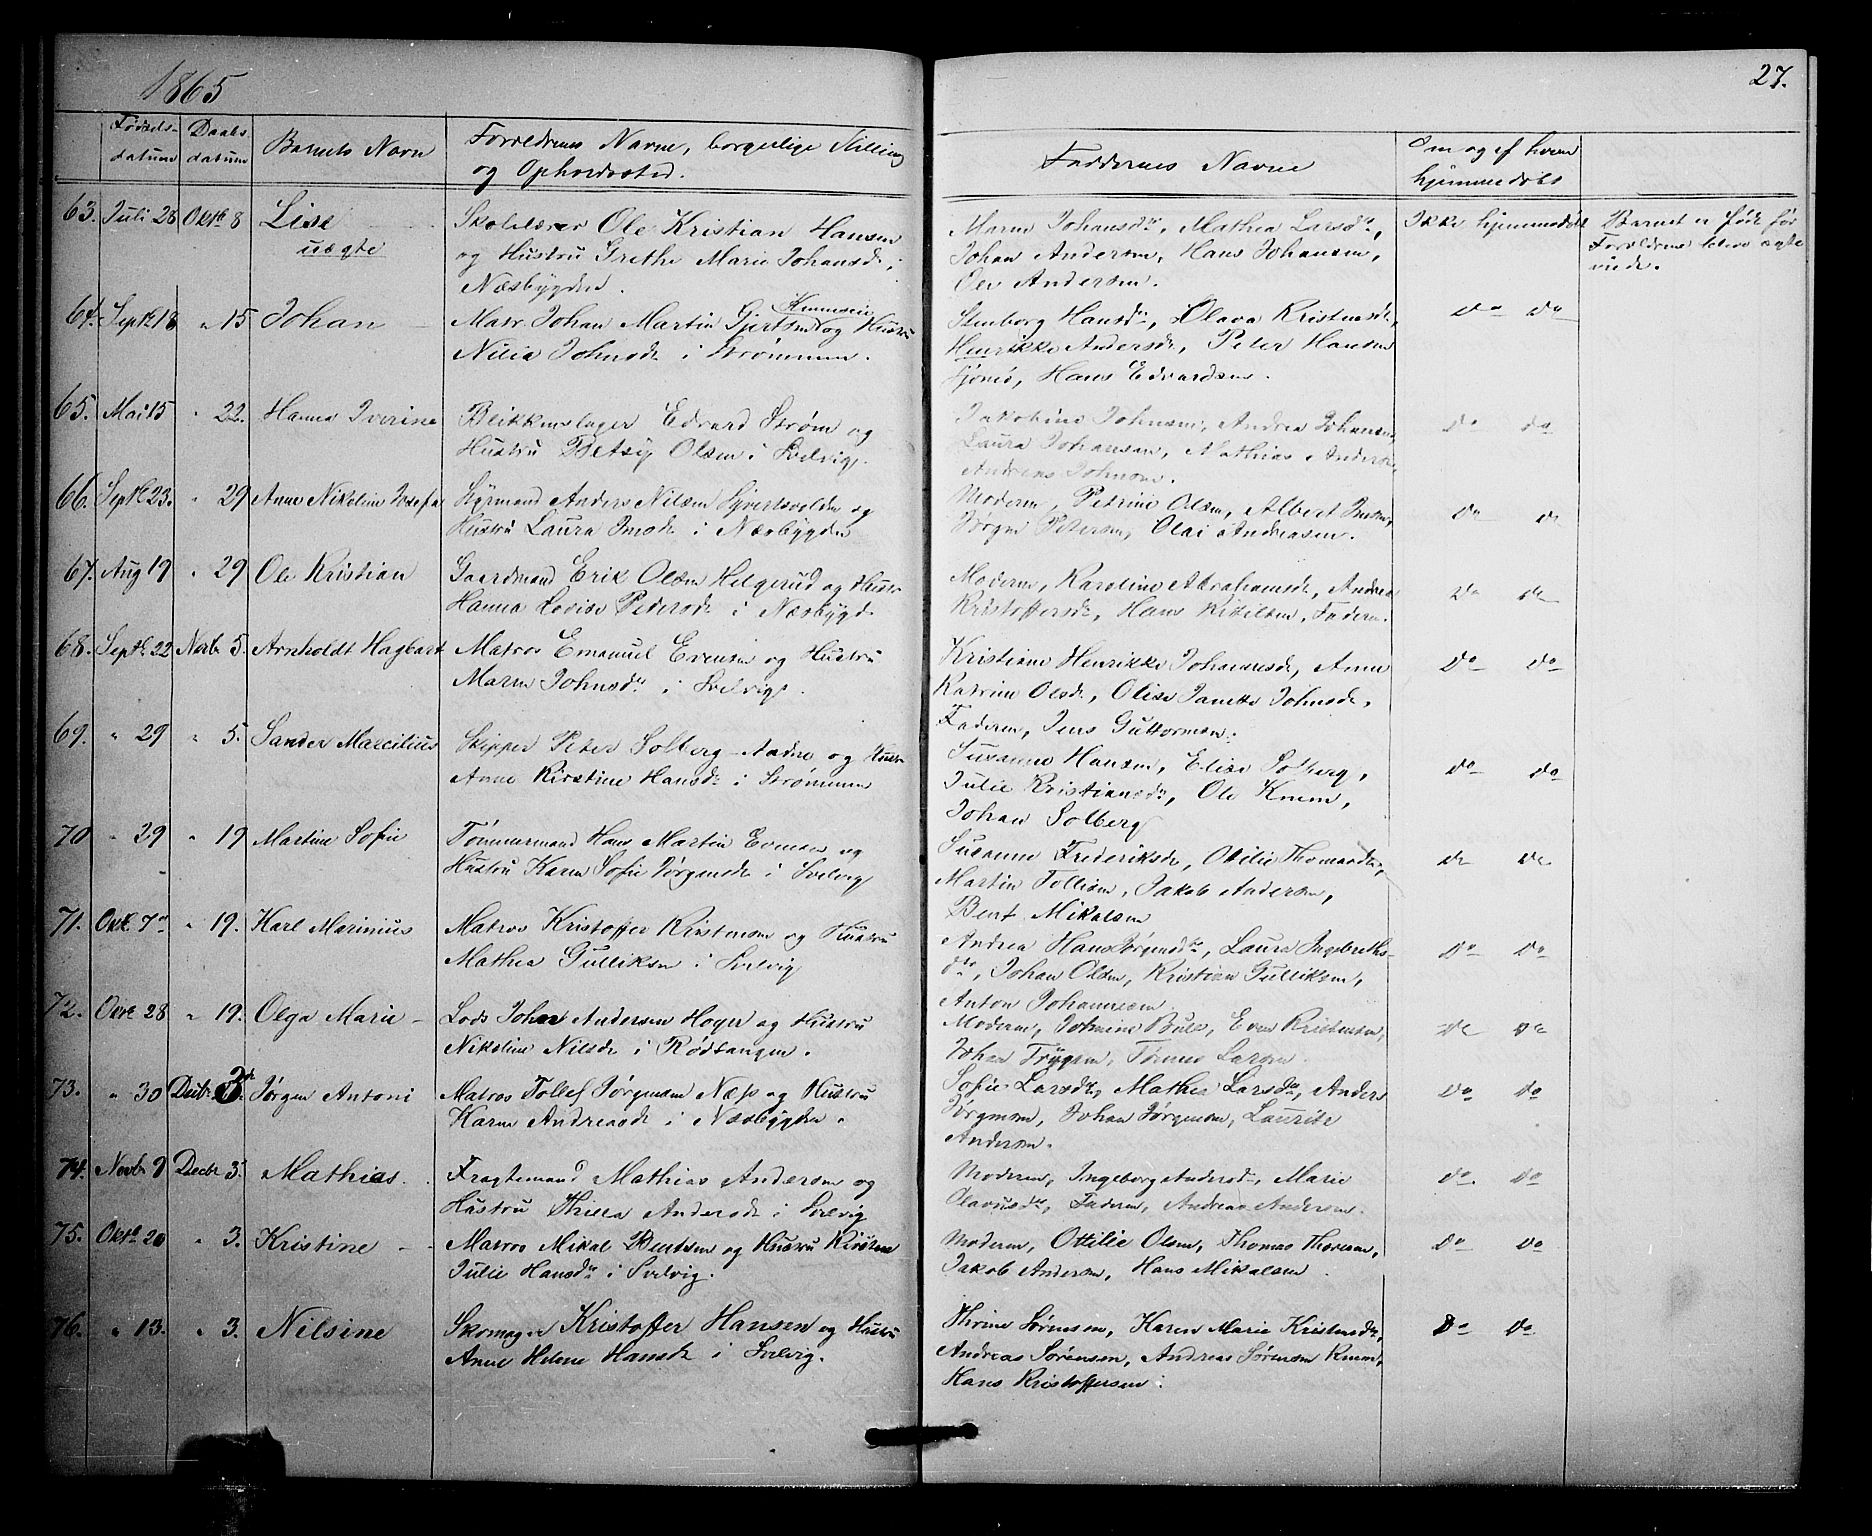 1865
27.
Fødsels- Daabs- Barnets Navn Forældrenes Navne, borgerlige Stilling
datum datum og Opholdssted.
Faddernes Navne Om og af hvem
hjemmedøbt
63. Juli 28 Oktb 8 Lise Skolelærer Ole Kristian Hansen
uægte og Hustru Grethe Marie Johansdr i
Næsbygden.
Maren Johansdr, Mathea Larsdr, Ikke hjemmedøbt Barnet er født før
Johan Andersen, Hans Johansen, Forældrene bleve ægte
Ole Andersen. viede.
64. Septb 18 " 15 Johan Matr. Johan Martin Gjertsen og Hustru
Nilia Johnsdr i Strømmen.
Stenborg Hansdr, Olava Kristensdr, Do Do
Henrikke Andersdr, Peter Hansen
Hans Edvardsen.
65. Mai 15 " 22. Hanna Iverine Blikkenslager Edvard Strøm og
Hustru Betsy Olsen i Svelvig.
Jakobine Johnsen, Andrea Johansen, Do Do
Laura Johansen, Mathias Andersen,
Andreas Johnsen.
66. Septb 23. " 29 Anne Nikoline Josefa Styrmand Anders Nilsen Syvertsvolden og
Hustru Laura Jensdr i Næsbygden
Moderen, Petrine Olsen, Albert Jensen, Do Do
Jørgen Petersen, Olai Andreasen.
67. Aug 19 " 29 Ole Kristian Gaardmand Erik Olsen Helgerud og Hustru
Hanna Lovise Pedersdr i Næsbygd.
Moderen, Karoline Abrahamsdr, Andrea Do Do
Kristoffersdr, Hans Faderen.
68. Septb 22 Novb 5. Arnholdt Hagbart Matros Emanuel Evensen og Hustru
Maren Johnsdr i Svelvig.
Kristiane Henrikke Johannesdr, Anne Do Do
Katrine Olsdr, Olise Janette Johnsdr,
Faderen, Jens Guttormsen.
69. " 29 " 5. Sander Marcilius Skipper Peter Solberg Aadne og Hustru
Anne Kirstine Hansdr i Strømmen
Susanne Hansen, Elise Solberg, Do Do
Julie Kristiansdr, Ole Knem,
Johan Solberg
70 " 29 " 19 Martine Sofie Tømmermand Hans Martin Evensen og
Hustru Karen Sofie Jørgensdr i Svelvig
Susanne Frederiksdr, Otilie Thomasdr, Do Do
Martin Tollisen, Jakob Andersen,
Bent Mikalsen
71. Oktb 7 " 19. Karl Marinius Matros Kristoffer Kristensen og Hustru
Mathea Gulliksen i Svelvig
Andrea Hans Jørgensdr, Laura Ingebreths- Do Do
dtr, Johan Olsen, Kristian Gulliksen,
Anton Johannesen
72. Oktb 28 " 19. Olga Marie Lods Johan Andersen Hoyer og Hustru
Nikoline Nilsdr i Rødtangen.
Moderen, Johnine Buls, Even Kristensen, Do Do
Johan Trygsen, Tønnes Larsen.
73. " 30 Decbr 3. Jørgen Antoni Matros Tollef Jørgensen Næss og Hustru
Karen Andreasdr i Næsbygden.
Sofie Larsdr, Mathea Larsdr, Anders Do Do
Jørgensen, Johan Jørgensen, Lauritz
Andersen.
74. Novbr 9 Decbr 3. Mathias Fragtemand Mathias Andersen og
Hustru Thilla Andersdr i Svelvig
Moderen, Ingeborg Andersdr, Marie Do Do
Olavusdr, Faderen, Andreas Andersen.
75. Oktb 20 " 3. Kristine Matros Mikal Bentsen og Hustru Kirstine
Julie Hansdr i Svelvig.
Moderen, Ottilie Olsen, Thomas Thoresen, Do Do
Jakob Andersen, Hans Mikalsen
76. " 13. " 3. Nilsine Skomager Kristoffer Hansen og Hustru
Anne Helene Hansdr i Svelvig.
Thrine Sørensen, Karen Marie Kristensdr, Do Do
Andreas Sørensen, Andreas Sørensen Knem,
Hans Kristoffersen.